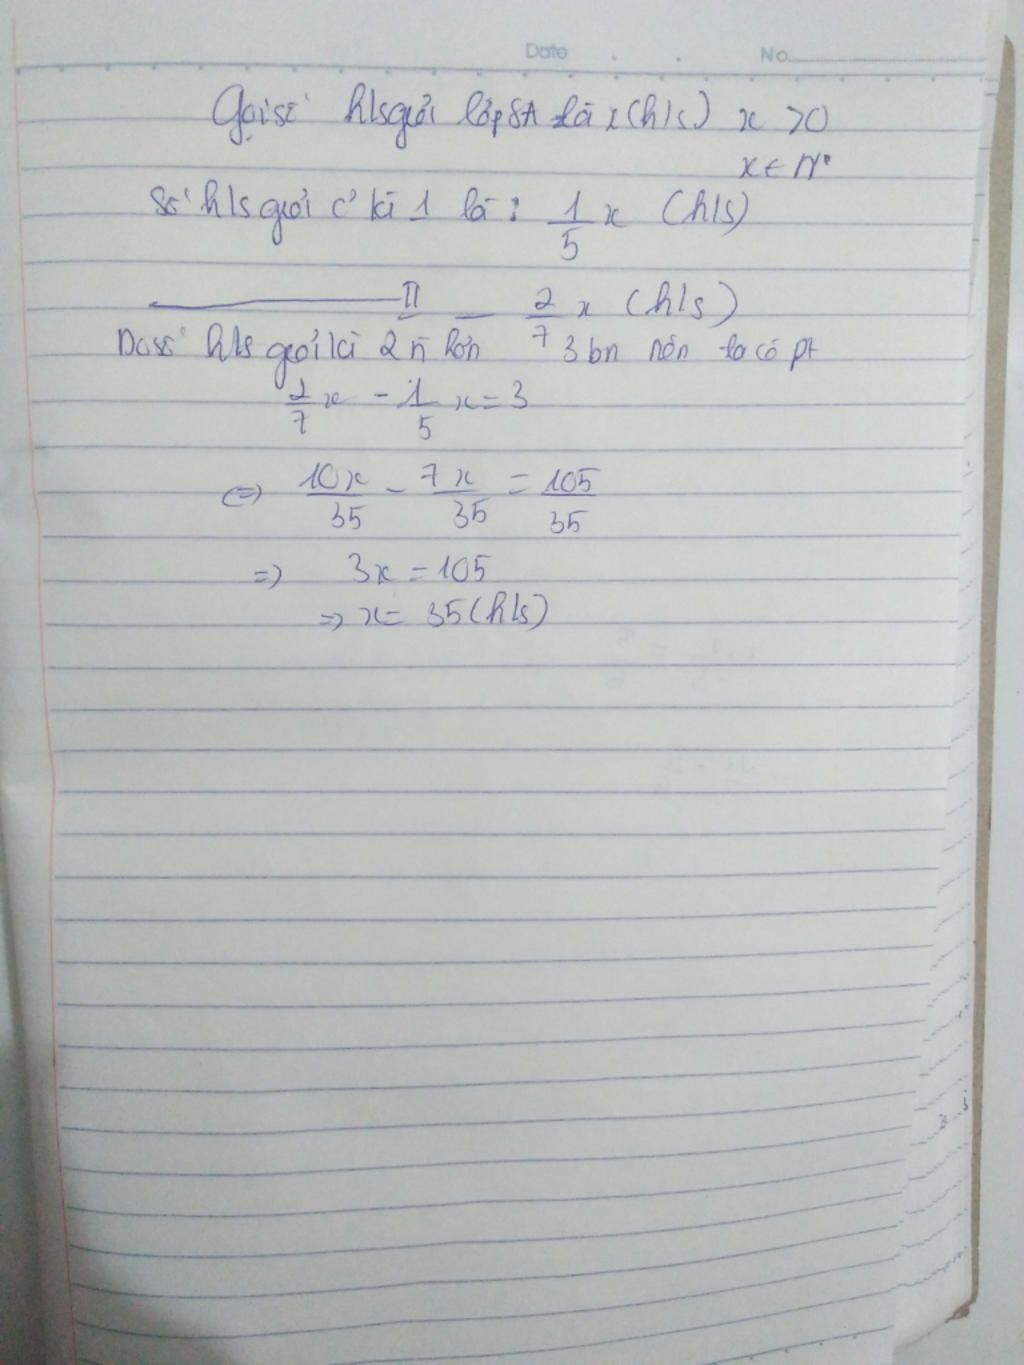 Date . . No.
Gọi số h/s giỏi lớp 8A là x (h/s) x > 0
x ∈ N*
Số h/s giỏi ở kì 1 là : 1/5 x (h/s)
———— II — 2/7 x (h/s)
Do số h/s giỏi kì 2 n hơn 3 bn nên ta có pt
2/7 x - 1/5 x = 3
<=> 10x/35 - 7x/35 = 105/35
=> 3x = 105
=> x = 35 (h/s)